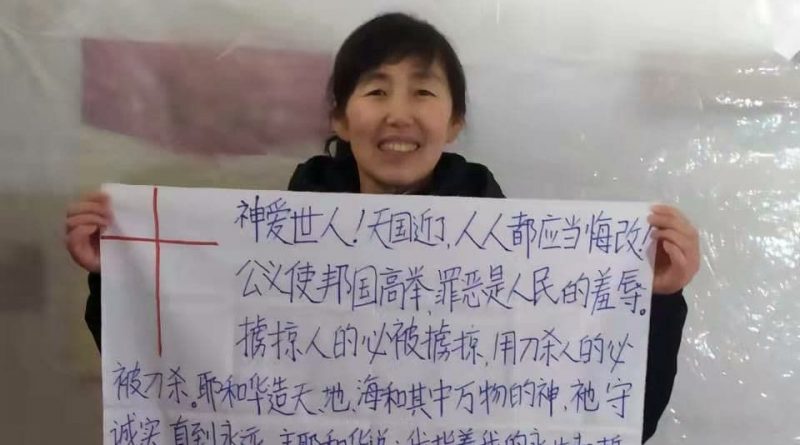 神爱世人！天国近了，人人都应当悔改！
公义使邦国高举，罪恶是人民的羞辱。
掳掠人的必被掳掠，用刀杀人的必
被刀杀。耶和华造天、地、海和其中万物的神，祂守
诚实，直到永远。主耶和华说：我指着我的永生起誓